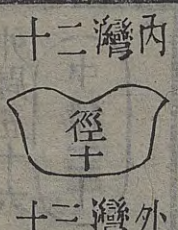 內灣二十
徑十
外灣三十